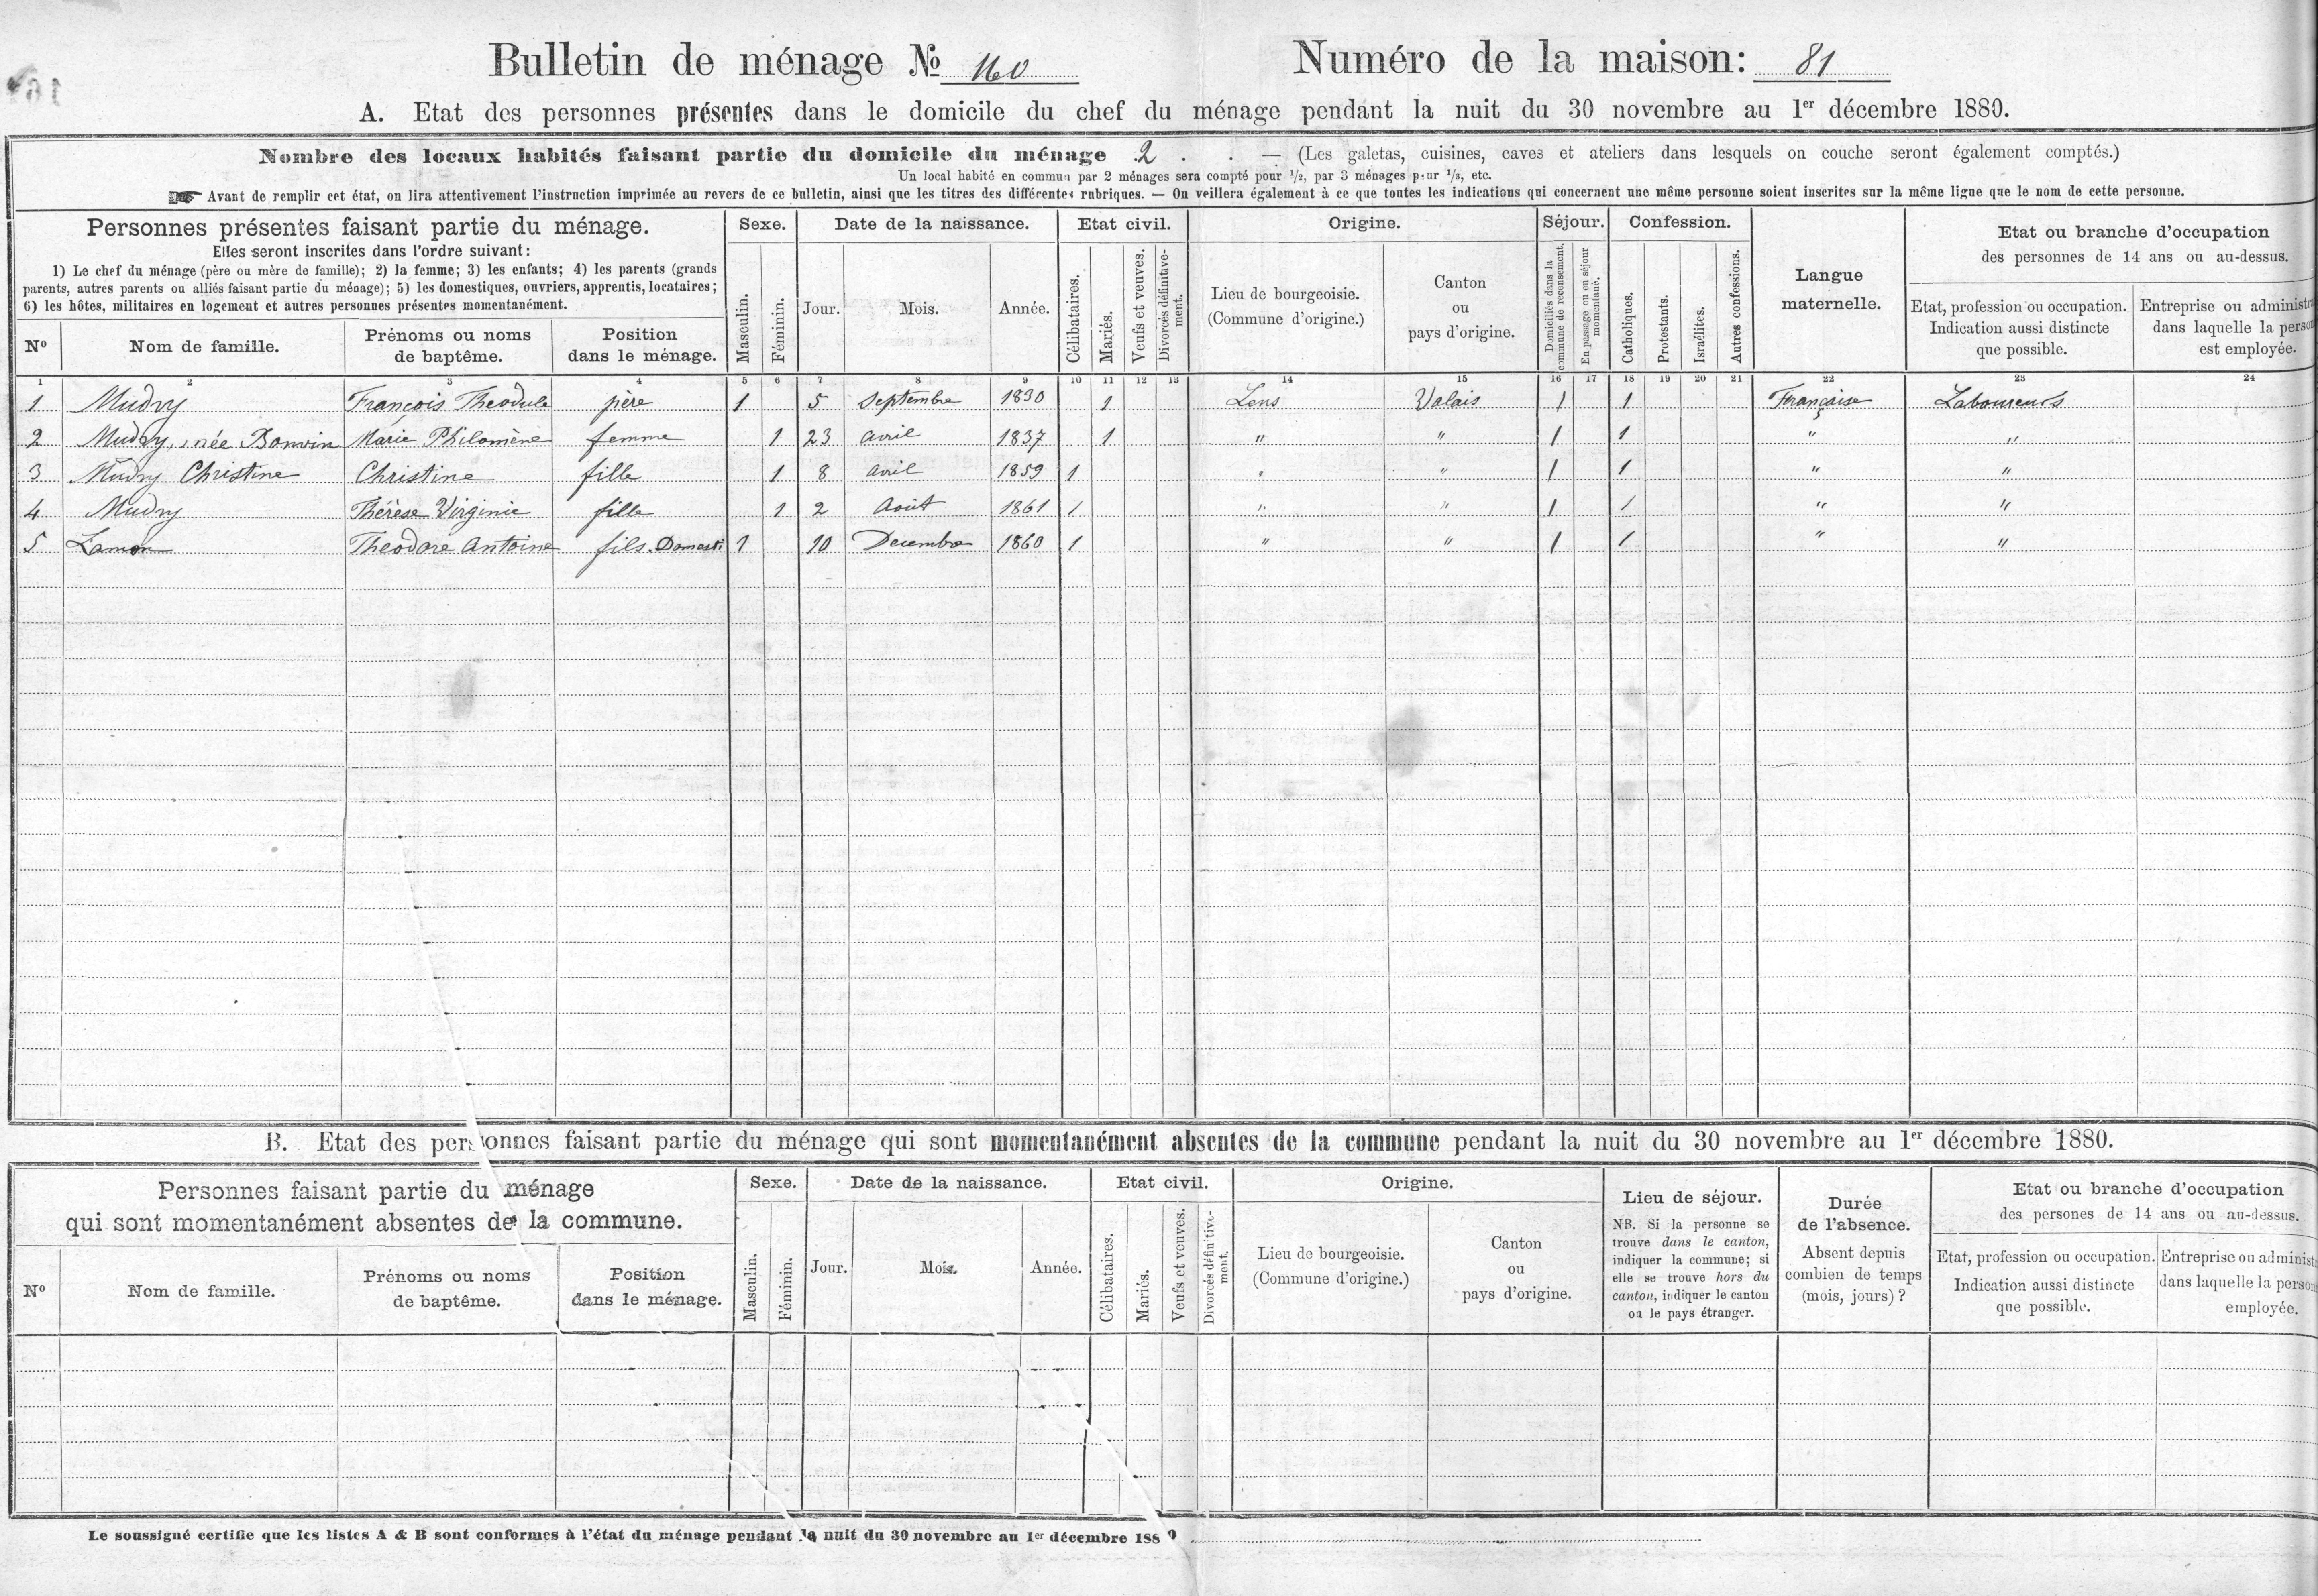 Bulletin de ménage No 160 Numéro de la maison: 81
A. Etat des personnes présentes dans le domicile du chef du ménage pendant la nuit du 30 novembre au 1er décembre 1880.
Nombre des locaux habités faisant partie du domicile du ménage 2 . . — (Les galetas, cuisines, caves et ateliers dans lesquels on couche seront également comptés.)
Un local habité en commun par 2 ménages sera compté pour 1/2, par 3 ménages pour 1/3, etc.
Avant de remplir cet état, on lira attentivement l'instruction imprimée au revers de ce bulletin, ainsi que les titres des différentes rubriques. — On veillera également à ce que toutes les indications qui concernent une même personne soient inscrites sur la même ligne que le nom de cette personne.
Personnes présentes faisant partie du ménage.
Elles seront inscrites dans l'ordre suivant:
1) Le chef du ménage (père ou mère de famille); 2) la femme; 3) les enfants; 4) les parents (grands
parents, autres parents ou alliés faisant partie du ménage); 5) les domestiques, ouvriers, apprentis, locataires;
6) les hôtes, militaires en logement et autres personnes présentes momentanément.
No
Nom de famille.
Prénoms ou noms
de baptême.
Position
dans le ménage.
Sexe.
Masculin.
Féminin.
Date de la naissance.
Jour.
Mois.
Année.
Etat civil.
Célibataires.
Mariés.
Veufs et veuves.
Divorcés définitive-
ment.
Origine.
Lieu de bourgeoisie.
(Commune d'origine.)
Canton
ou
pays d'origine.
Séjour.
Domiciliés dans la
commune de recensement.
En passage ou en séjour
momentané.
Confession.
Catholiques.
Protestants.
Israélites.
Autres confessions.
Langue
maternelle.
Etat ou branche d'occupation
des personnes de 14 ans ou au-dessus.
Etat, profession ou occupation.
Indication aussi distincte
que possible.
Entreprise ou administra
dans laquelle la person
est employée.
1 2 3 4 5 6 7 8 9 10 11 12 13 14 15 16 17 18 19 20 21 22 23 24
1 Mudry François Theodule père 1 5 Septembre 1830 1 Lens Valais 1 1 Française Laboureurs
2 Mudry, née Bonvin Marie Philomène femme 1 23 avril 1837 1 " " 1 1 " "
3 Mudry Christine Christine fille 1 8 avril 1859 1 " " 1 1 " "
4 Mudry Thérèse Virginie fille 1 2 Août 1861 1 " " 1 1 " "
5 Lamon Theodore Antoine fils. Domesti 1 10 Decembre 1860 1 " " 1 1 " "
B. Etat des personnes faisant partie du ménage qui sont momentanément absentes de la commune pendant la nuit du 30 novembre au 1er décembre 1880.
Personnes faisant partie du ménage
qui sont momentanément absentes de la commune.
No
Nom de famille.
Prénoms ou noms
de baptême.
Position
dans le ménage.
Sexe.
Masculin.
Féminin.
Date de la naissance.
Jour.
Mois.
Année.
Etat civil.
Célibataires.
Mariés.
Veufs et veuves.
Divorcés définitive-
ment.
Origine.
Lieu de bourgeoisie.
(Commune d'origine.)
Canton
ou
pays d'origine.
Lieu de séjour.
NB. Si la personne se
trouve dans le canton,
indiquer la commune; si
elle se trouve hors du
canton, indiquer le canton
ou le pays étranger.
Durée
de l'absence.
Absent depuis
combien de temps
(mois, jours)?
Etat ou branche d'occupation
des persones de 14 ans ou au-dessus.
Etat, profession ou occupation.
Indication aussi distincte
que possible.
Entreprise ou administ
dans laquelle la person
employée.
Le soussigné certifie que les listes A & B sont conformes à l'état du ménage pendant la nuit du 30 novembre au 1er décembre 1880